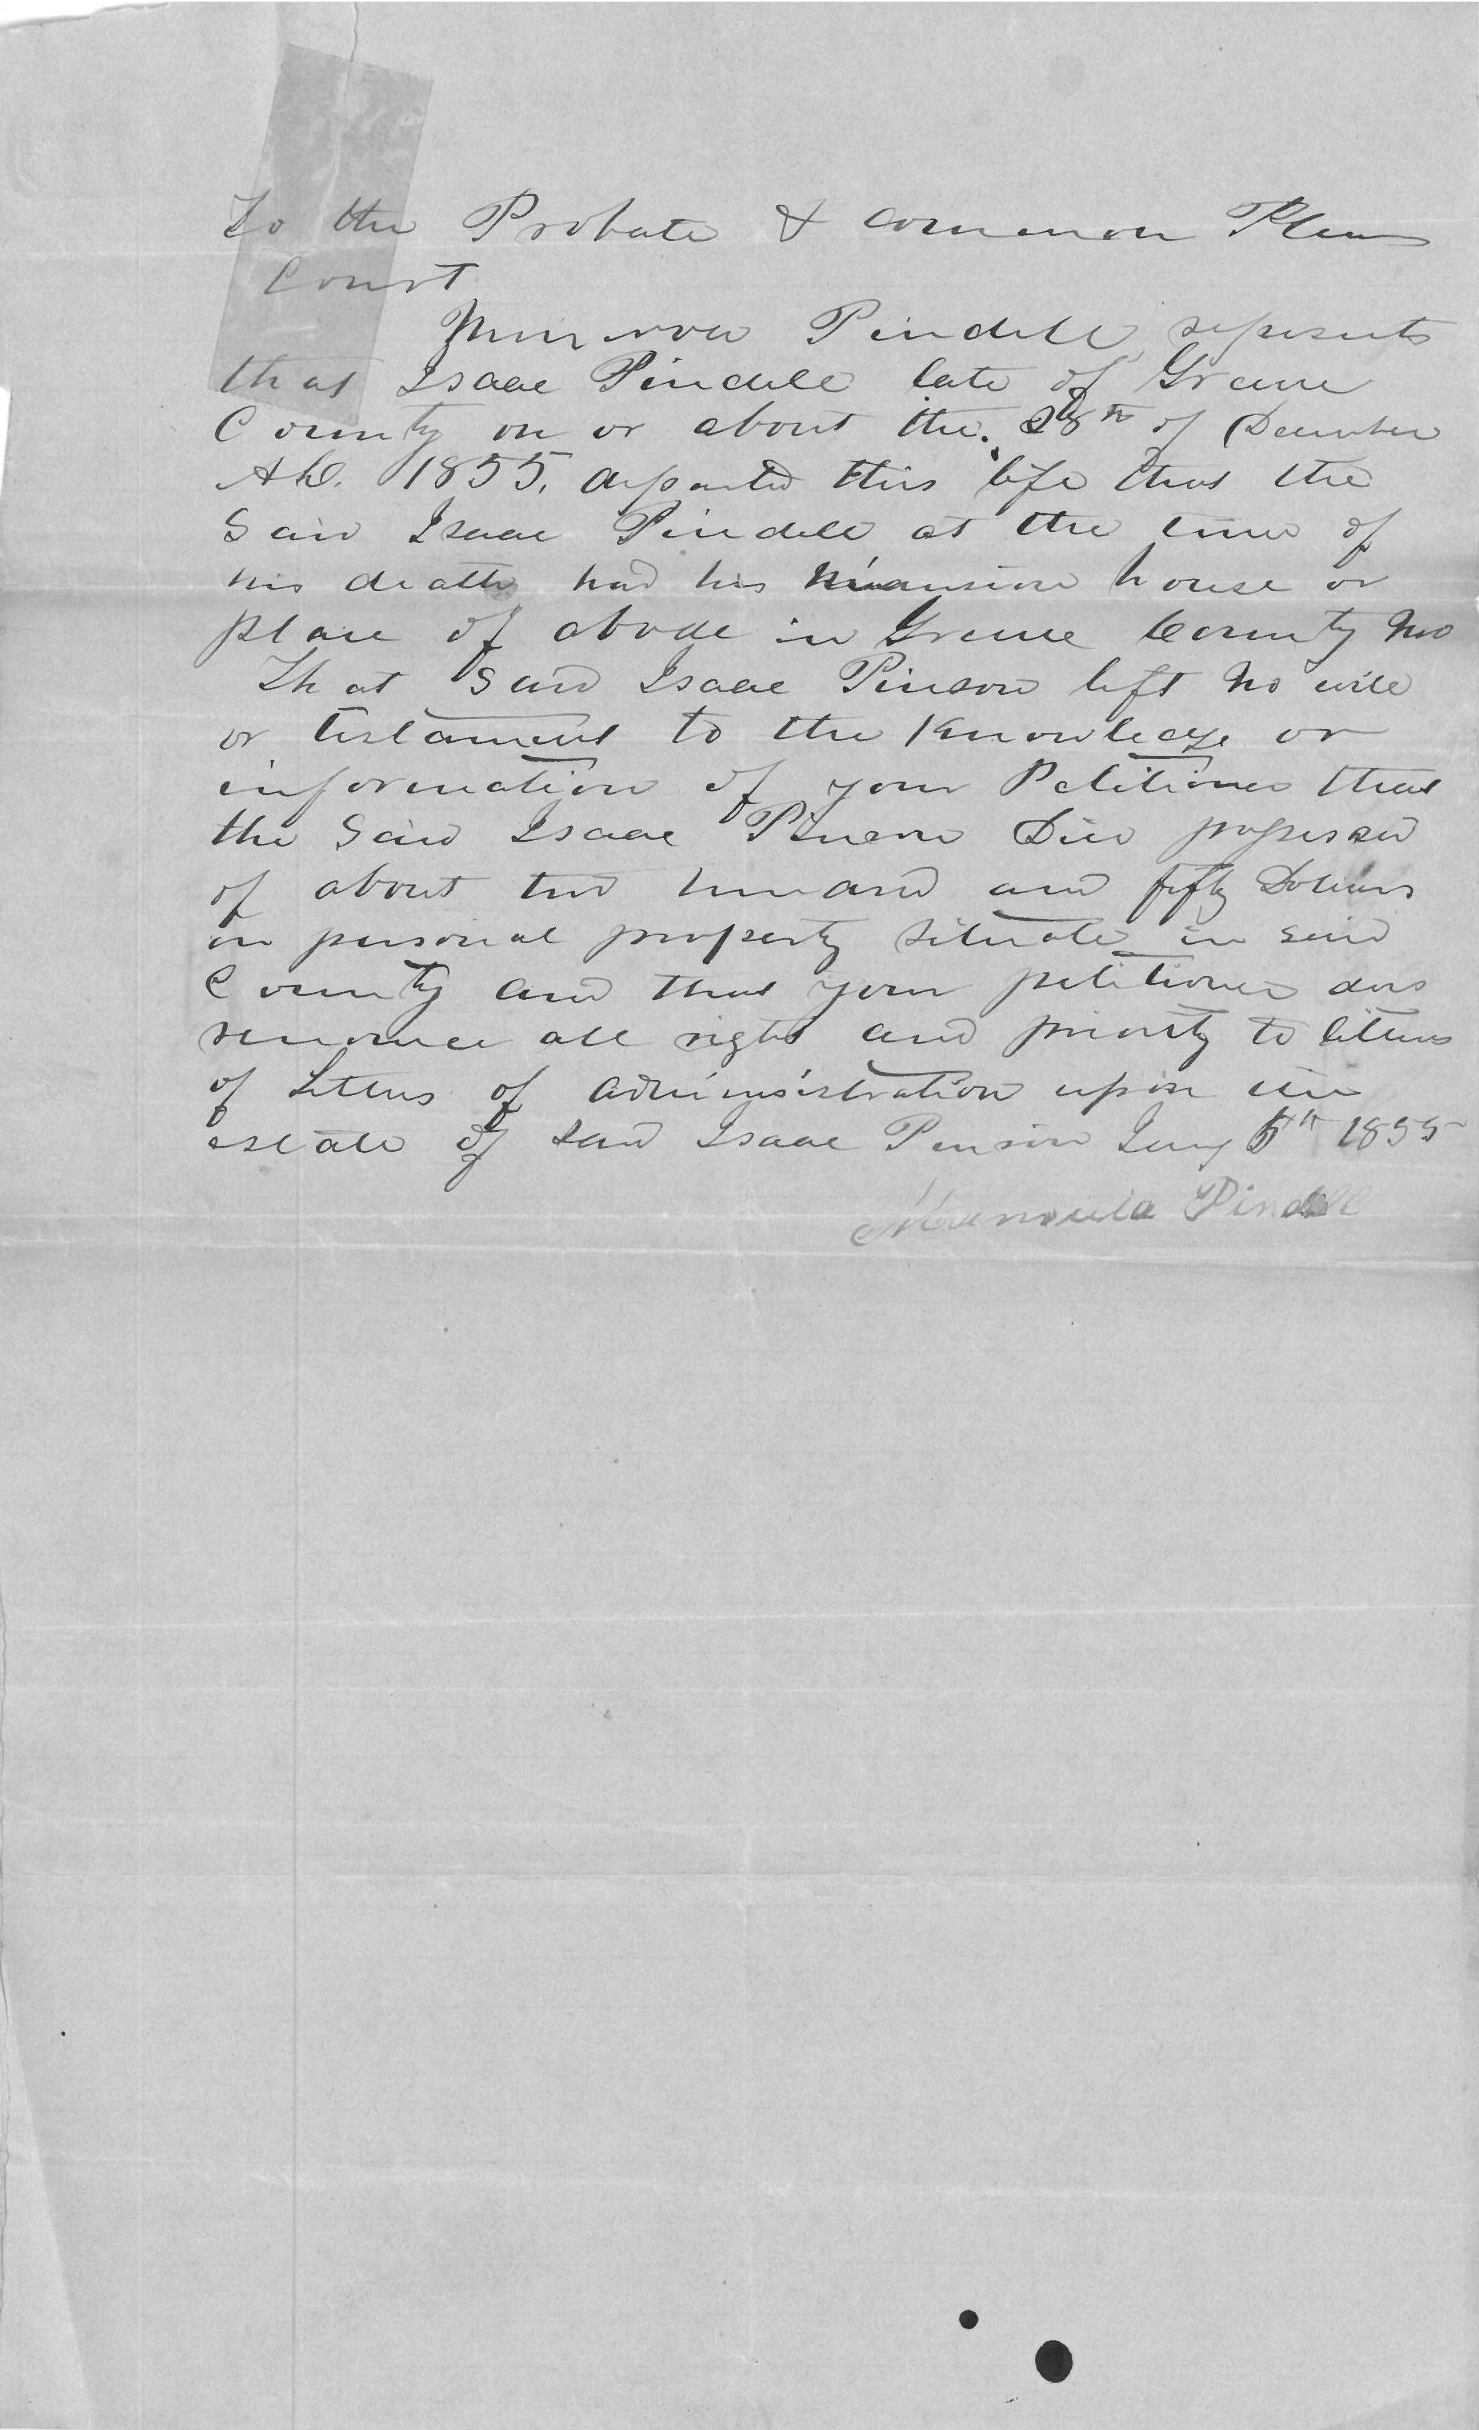 To the Probate & common Pleas
Court
Minerva Pindell represents
that Isaac Pindell late of Greene
County on or about the 28th of December
AD. 1855, departed this life that the
Said Isaac Pindell at the time of
his death had his Mansion house or
place of abode in Greene County Mo
That Said Isaac Pinson left No will
or testament to the Knowledge or
information of your Petitioner that
the Said Isaac Pinson Died possessed
of about two hundred and fifty Dollars
in personal property situate in said
County and that your petitioner does
renounce all right and priority to letters
of Letters of administration upon the
estate of said Isaac Pinson Jany 5th 1855
Pindell